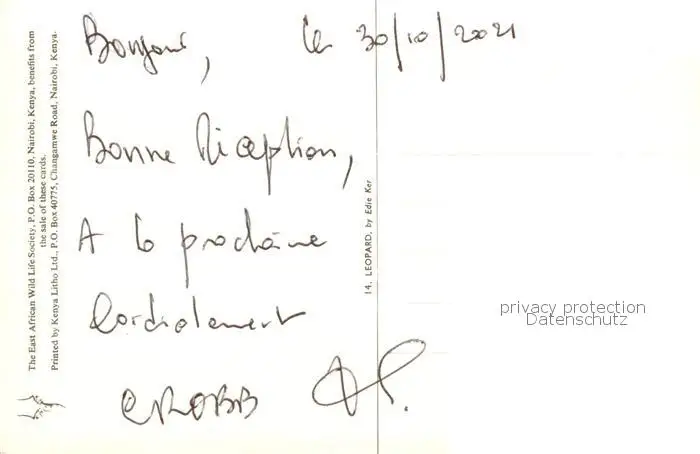 Bonjour, le 30/10/2021
Bonne Réception,
A la prochaine
Cordialement
The East African Wild Life Society, P.O. Box 20110, Nairobi, Kenya, benefits from
the sale of these cards.
Printed by Kenya Litho Ltd., P.O. Box 40775, Changamwe Road, Nairobi, Kenya.
14. LEOPARD, by Edie Ker
privacy protection
Datenschutz